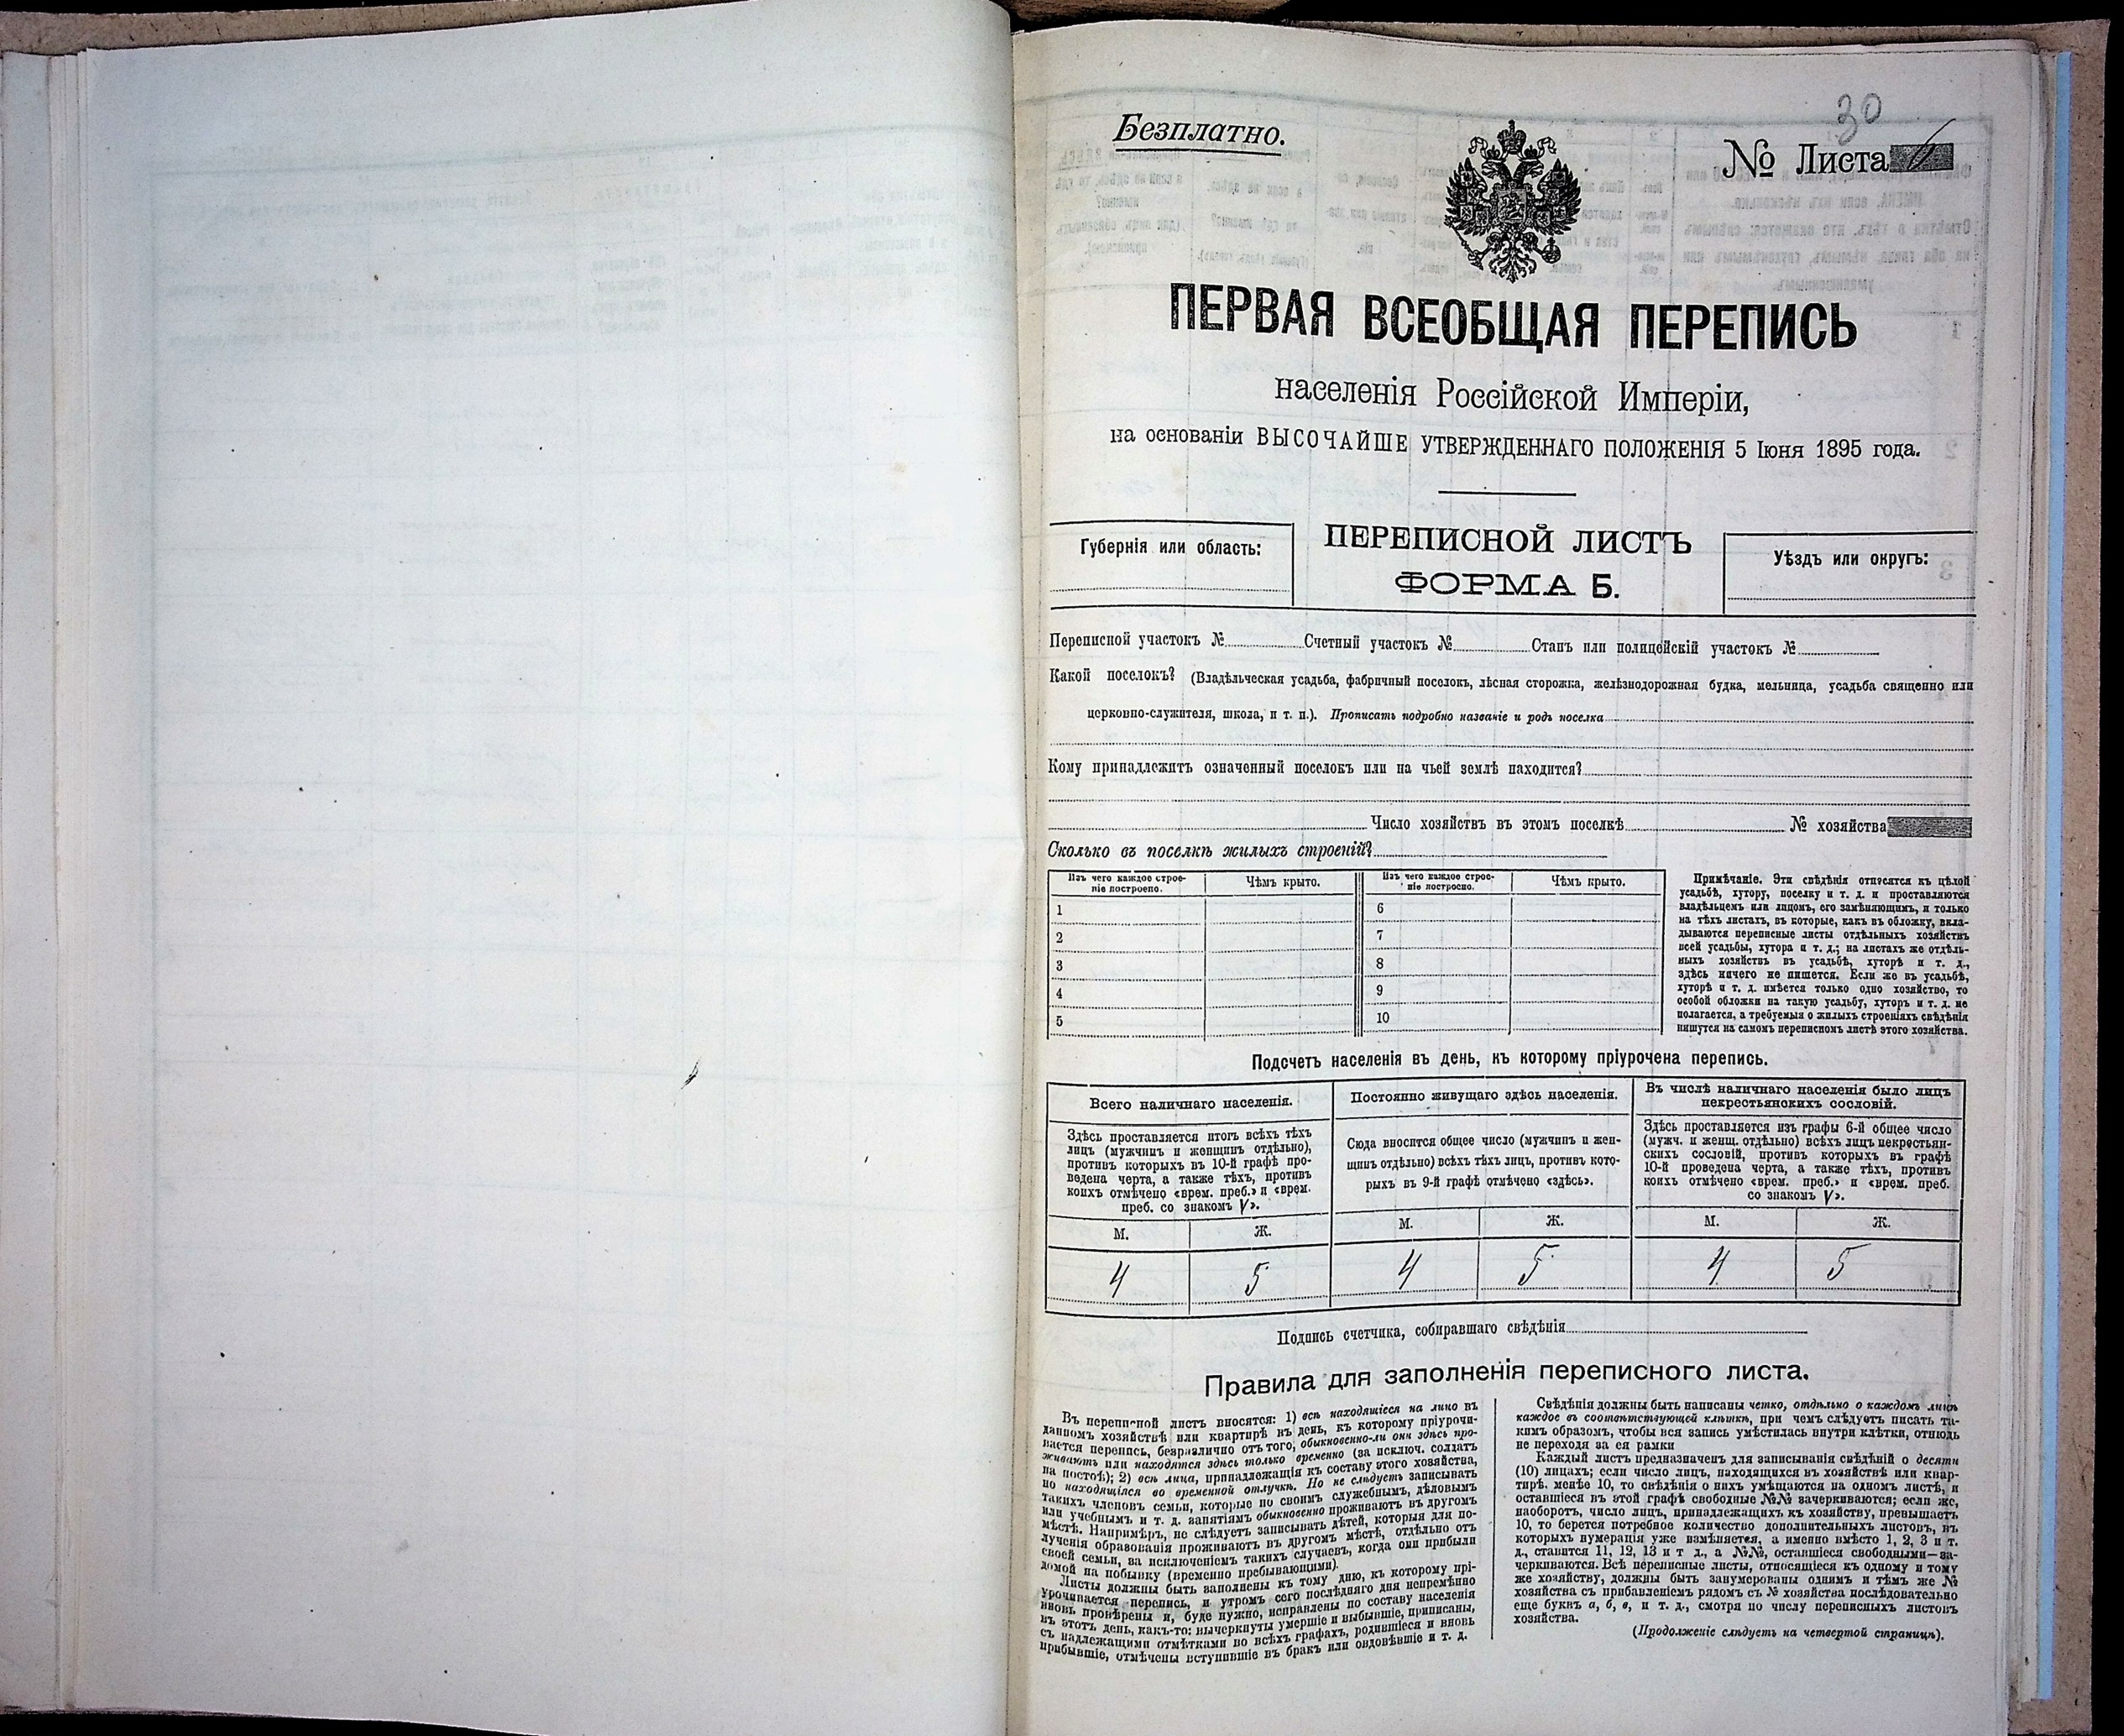 30
Безплатно.
№ Листа 6
ПЕРВАЯ ВСЕОБЩАЯ ПЕРЕПИСЬ
населенія Россійской Имперіи,
на основаніи ВЫСОЧАЙШЕ УТВЕРЖДЕННАГО ПОЛОЖЕНІЯ 5 Іюня 1895 года.
Губернія или область:
ПЕРЕПИСНОЙ ЛИСТЪ
ФОРМА Б.
Уѣздъ или округъ:
Переписной участокъ № Счетный участокъ № Станъ или полицейскій участокъ №
Какой поселокъ? (Владѣльческая усадьба, фабричный поселокъ, лѣсная сторожка, желѣзнодорожная будка, мельница, усадьба священно или
церковно-служителя, школа, и т. п.). Прописать подробно названіе и родъ поселка
Кому принадлежитъ означенный поселокъ или на чьей землѣ находится?
Число хозяйствъ въ этомъ поселкѣ № хозяйства
Сколько въ поселкѣ жилыхъ строеній?
Изъ чего каждое строе-
ніе построено.
Чѣмъ крыто.
Изъ чего каждое строе-
ніе построено.
Чѣмъ крыто.
1
2
3
4
5
6
7
8
9
10
Примѣчаніе. Эти свѣдѣнія относятся къ цѣлой
усадьбѣ, хутору, поселку и т. д. и проставляются
владѣльцемъ или лицомъ, его замѣняющимъ, и только
на тѣхъ листахъ, въ которые, какъ въ обложку, вкла-
дываются переписные листы отдѣльныхъ хозяйствъ
всей усадьбы, хутора и т. д.; на листахъ же отдѣль-
ныхъ хозяйствъ въ усадьбѣ, хуторѣ и т. д.,
здѣсь ничего не пишется. Если же въ усадьбѣ,
хуторѣ и т. д. имѣется только одно хозяйство, то
особой обложки на такую усадьбу, хуторъ и т. д. не
полагается, а требуемыя о жилыхъ строеніяхъ свѣдѣнія
пишутся на самомъ переписномъ листѣ этого хозяйства.
Подсчетъ населенія въ день, къ которому пріурочена перепись.
Всего наличнаго населенія.
Здѣсь проставляется итогъ всѣхъ тѣхъ
лицъ (мужчинъ и женщинъ отдѣльно),
противъ которыхъ въ 10-й графѣ про-
ведена черта, а также тѣхъ, противъ
коихъ отмѣчено «врем. преб.» и «врем.
преб. со знакомъ V».
М. Ж.
4 5
Постоянно живущаго здѣсь населенія.
Сюда вносится общее число (мужчинъ и жен-
щинъ отдѣльно) всѣхъ тѣхъ лицъ, противъ кото-
рыхъ въ 9-й графѣ отмѣчено «здѣсь».
М. Ж.
4 5
Въ числѣ наличнаго населенія было лицъ
некрестьянскихъ сословій.
Здѣсь проставляется изъ графы 6-й общее число
(мужч. и женщ. отдѣльно) всѣхъ лицъ некрестьян-
скихъ сословій, противъ которыхъ въ графѣ
10-й проведена черта, а также тѣхъ, противъ
коихъ отмѣчено «врем. преб.» и «врем. преб.
со знакомъ V».
М. Ж.
4 5
Подпись счетчика, собиравшаго свѣдѣнія
Правила для заполненія переписного листа.
Въ переписной листъ вносятся: 1) всѣ находящіеся на лицо въ
данномъ хозяйствѣ или квартирѣ въ день, къ которому пріурочи-
вается перепись, безразлично отъ того, обыкновенно-ли они здѣсь про-
живаютъ или находятся здѣсь только временно (за исключ. солдатъ
на постоѣ); 2) всѣ лица, принадлежащія къ составу этого хозяйства,
но находящіяся во временной отлучкѣ. Но не слѣдуетъ записывать
такихъ членовъ семьи, которые по своимъ служебнымъ, дѣловымъ
или учебнымъ и т. д. занятіямъ обыкновенно проживаютъ въ другомъ
мѣстѣ. Напримѣръ, не слѣдуетъ записывать дѣтей, которыя для по-
лученія образованія проживаютъ въ другомъ мѣстѣ, отдѣльно отъ
своей семьи, за исключеніемъ такихъ случаевъ, когда они прибыли
домой на побывку (временно пребывающими).
Листы должны быть заполнены къ тому дню, къ которому прі-
урочивается перепись, и утромъ сего послѣдняго дня непремѣнно
вновь провѣрены и, буде нужно, исправлены по составу населенія
въ этотъ день, какъ-то: вычеркнуты умершіе и выбывшіе, приписаны,
съ надлежащими отмѣтками во всѣхъ графахъ, родившіеся и вновь
прибывшіе, отмѣчены вступившіе въ бракъ или овдовѣвшіе и т. д.
Свѣдѣнія должны быть написаны четко, отдѣльно о каждомъ лицѣ
каждое въ соотвѣтствующей клѣткѣ, при чемъ слѣдуетъ писать та-
кимъ образомъ, чтобы вся запись умѣстилась внутри клѣтки, отнюдь
не переходя за ея рамки
Каждый листъ предназначенъ для записыванія свѣдѣній о десяти
(10) лицахъ; если число лицъ, находящихся въ хозяйствѣ или квар-
тирѣ, менѣе 10, то свѣдѣнія о нихъ умѣщаются на одномъ листѣ, и
оставшіеся въ этой графѣ свободные №№ зачеркиваются; если же,
наоборотъ, число лицъ, принадлежащихъ къ хозяйству, превышаетъ
10, то берется потребное количество дополнительныхъ листовъ, въ
которыхъ нумерація уже измѣняется, а именно вмѣсто 1, 2, 3 и т.
д., ставится 11, 12, 13 и т д., а №№, оставшіеся свободными—за-
черкиваются. Всѣ переписные листы, относящіеся къ одному и тому
же хозяйству, должны быть занумерованы однимъ и тѣмъ же №
хозяйства съ прибавленіемъ рядомъ съ № хозяйства послѣдовательно
еще буквъ а, б, в, и т. д., смотря по числу переписныхъ листовъ
хозяйства.
(Продолженіе слѣдуетъ на четвертой страницѣ).